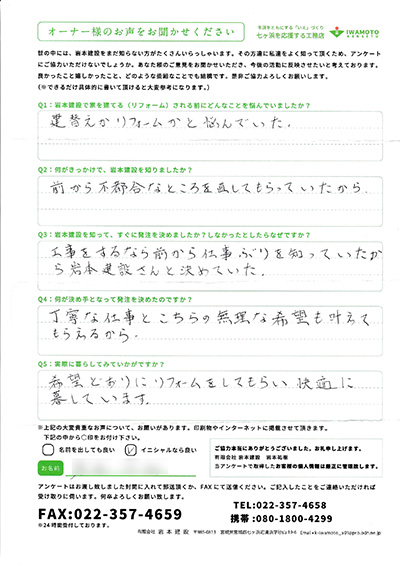 オーナー様のお声をお聞かせください
生涯をともにする「いえ」づくり
七ヶ浜を応援する工務店
IWAMOTO
KENSETU
世の中には、岩本建設をまだ知らない方がたくさんいらっしゃいます。その方達に私達をよく知って頂くため、アンケート
にご協力いただけないでしょうか。あなた様のご意見をお聞かせいただき、今後の活動に反映させたいと考えております。
良かったこと嬉しかったこと、どのような些細なことでも結構です。是非ご協力よろしくお願いします。
(※できるだけ具体的に書いて頂けると大変参考になります。)
Q1:岩本建設で家を建てる(リフォーム)される前にどんなことを悩んでいましたか?
建替えかリフォームかと悩んでいた.
Q2:何がきっかけで、岩本建設を知りましたか?
前から不都合なところを直してもらっていたから.
Q3:岩本建設を知って、すぐに発注を決めましたか?しなかったとしたらなぜですか?
工事をするなら前から仕事ぶりを知っていたか
ら岩本建設さんと決めていた.
Q4:何が決め手となって発注を決めたのですか?
丁寧な仕事とこちらの無理な希望も叶えて
もらえるから.
Q5:実際に暮らしてみていかがですか?
希望どおりにリフォームをしてもらい快適に
暮しています.
※上記の大変貴重なお声について、お願いがあります。印刷物やインターネットに掲載させて頂きます。
下記の中から○印をお付け下さい。
名前を出しても良い
イニシャルなら良い
お名前
ご協力本当にありがとうございました。お礼申し上げます。
有限会社 岩本建設 岩本祐樹
当アンケートで取得したお客様の個人情報は厳正に管理致します。
アンケートはお渡し致しました封筒に入れて郵送頂くか、FAXにて送信ください。ご記入したことをご連絡いただければ
受け取りに伺います。何卒よろしくお願い致します。
FAX:022-357-4659
※24時間受付しております。
TEL:022-357-4658
携帯:080-1800-4299
有限会社 岩本建設